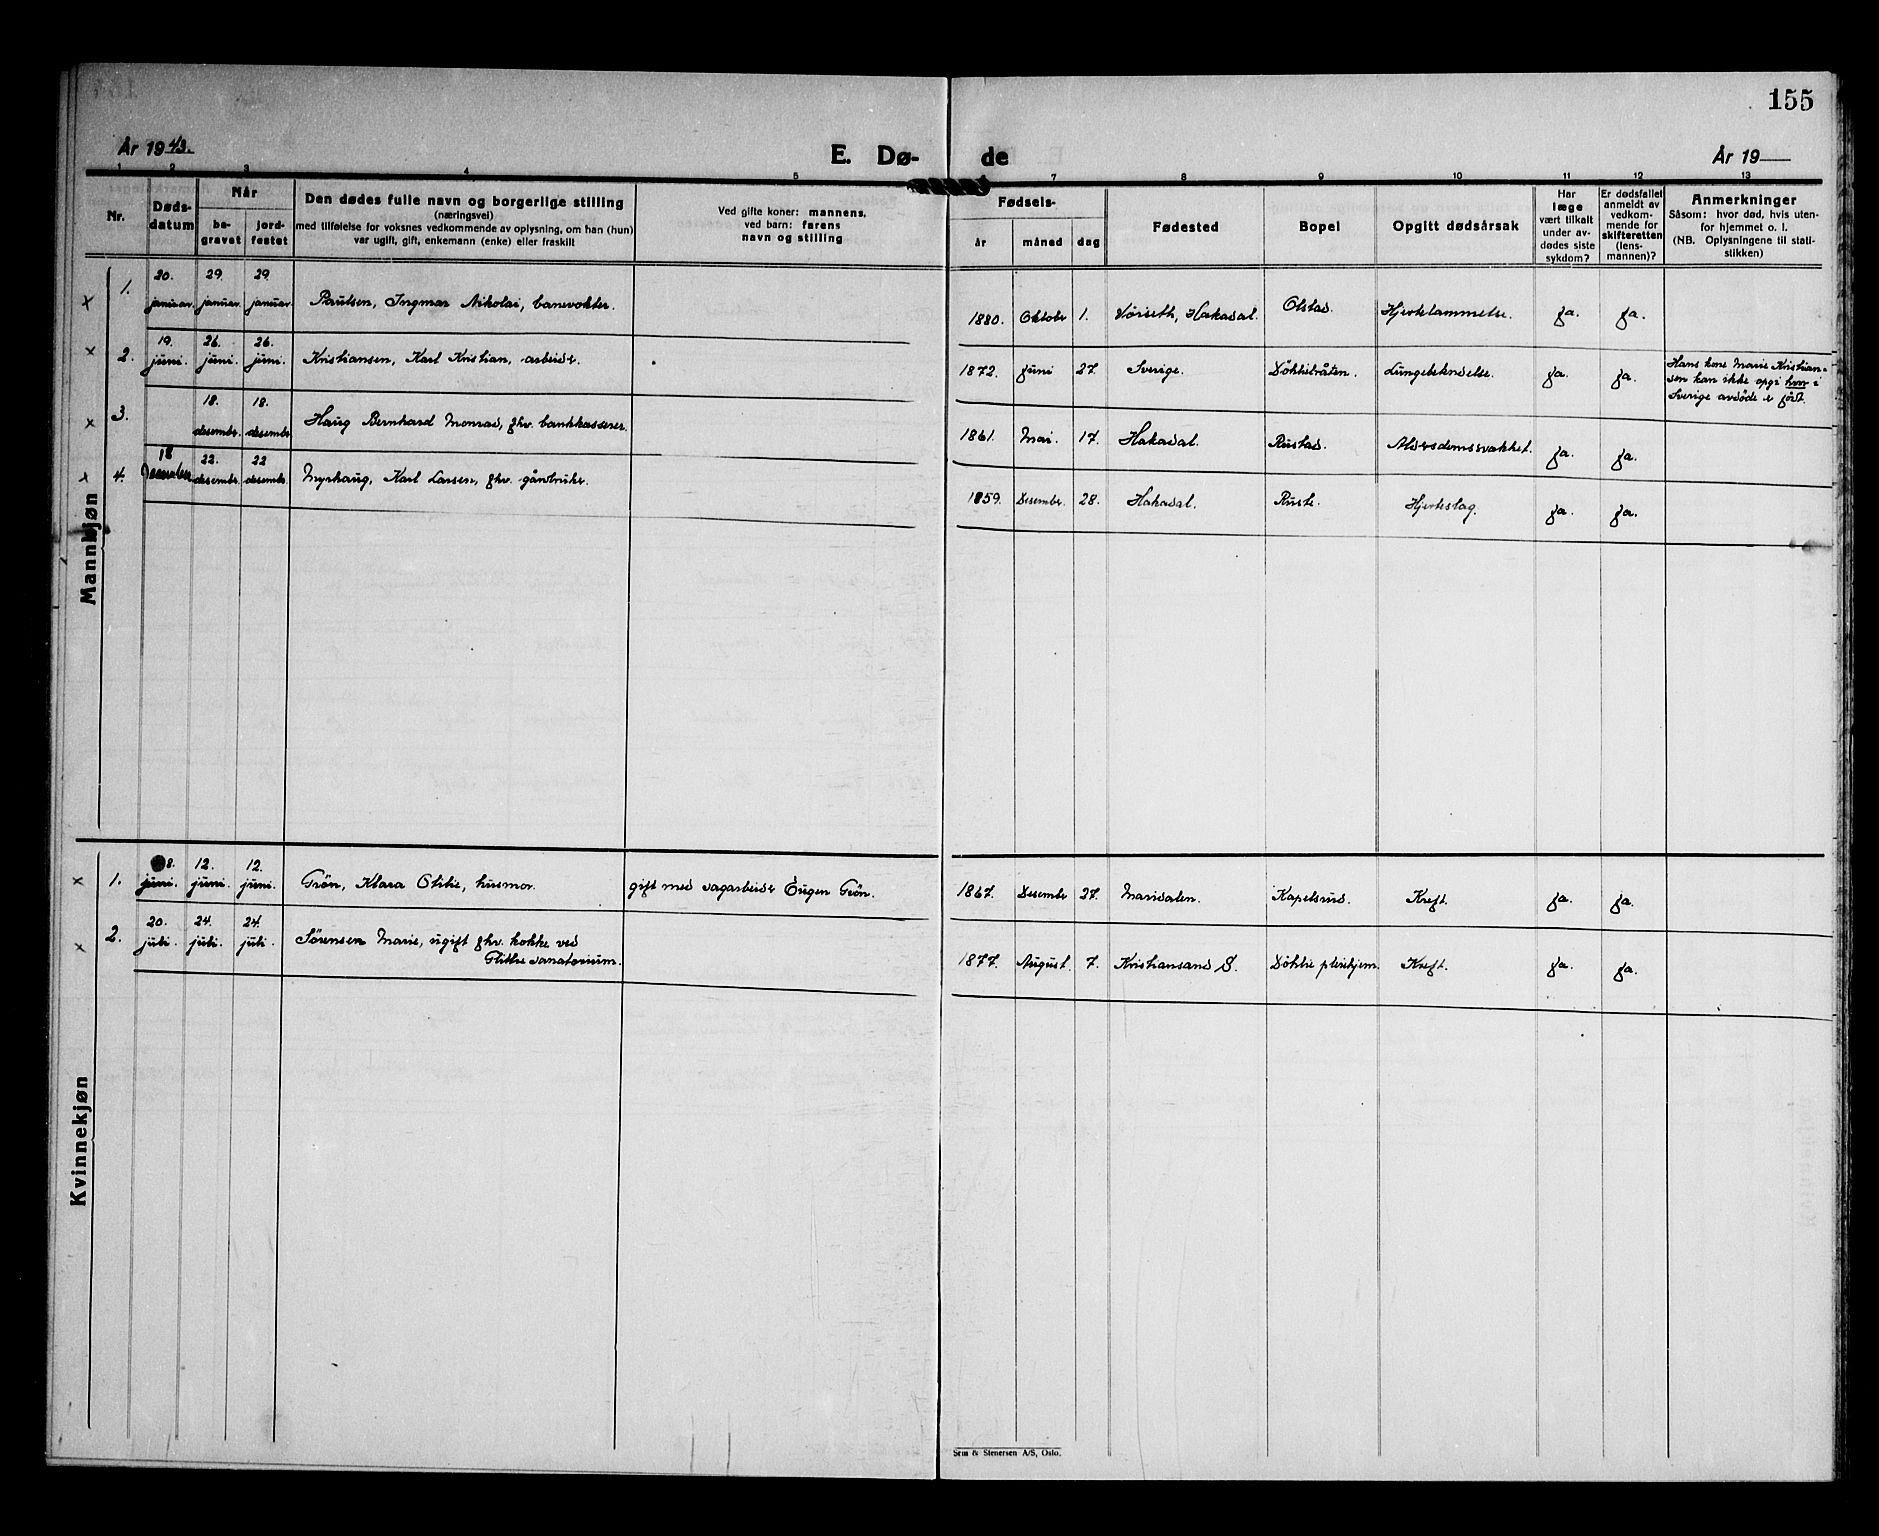 155
År 19 43.
E. Dø-
de
År 19
1 2 3 4 5 7 8 9 10 11 12 13
Nr.
Døds-
datum
Når
be-
gravet
jord-
festet
Den dødes fulle navn og borgerlige stilling
(næringsvei)
med tilføielse for voksnes vedkommende av oplysning, om han (hun)
var ugift, gift, enkemann (enke) eller fraskilt
Ved gifte koner: mannens,
ved barn: farens
navn og stilling
Fødsels-
år
måned
dag
Fødested
Bopel
Opgitt dødsårsak
Har
læge
vært tilkalt
under av-
dødes siste
sykdom?
Er dødsfallet
anmeldt av
vedkom-
mende for
skifteretten
(lens-
mannen)?
Anmerkninger
Såsom: hvor død, hvis uten-
for hjemmet o. l.
(NB. Oplysningene til stati-
stikken)
Mannkjøn
x 1. 20. januar. 29. januar. 29. januar. Paulsen, Ingmar Nikolai, banevokter. 1880. Oktober 1. Hakadal. Olstad. Hjertelammelse. ja. ja.
x 2. 19. juni. 26. juni. 26. juni. Kristiansen, Karl Kristian, arbeider. 1872. Juni 27. Sverige. Döhlilråten. Lungebetendelse. ja. ja. Hans kone Marie Kristian-
sen kan ikke opgi hvor i
Sverige avdöde er födt.
x 3. 18. desember. 18. desember. Haug Bernhard Monrad, fhv. bankkasserer. 1861. Mai. 17. Hakadal. Rustad. Alderdomssvakhet. ja. ja.
x 4. 18 Desember 22. desember. 22 desember. Myrhaug, Karl Larsen, fhv. gårdbruker. 1859. Desember 28. Hakadal. Ruste. Hjerteslag. ja. ja.
Kvinnekjøn
x 1. 8. juni. 12. juni. 12. juni. Grön, Klara Otilie, husmor. gift med sagarbeider Eugen Grön. 1867. Desember 27. Maridalen. Kapelsrud. Kreft. ja. ja.
x 2. 20. juli. 24. juli. 24. juli. Sörensen Marie, ugift fhv. kokke ved
Glittre sanatorium. 1877. August. 7. Kristiansand S. Döhlie pleiehjem. Kreft. ja. ja.
Sem & Stenersen A/S, Oslo.